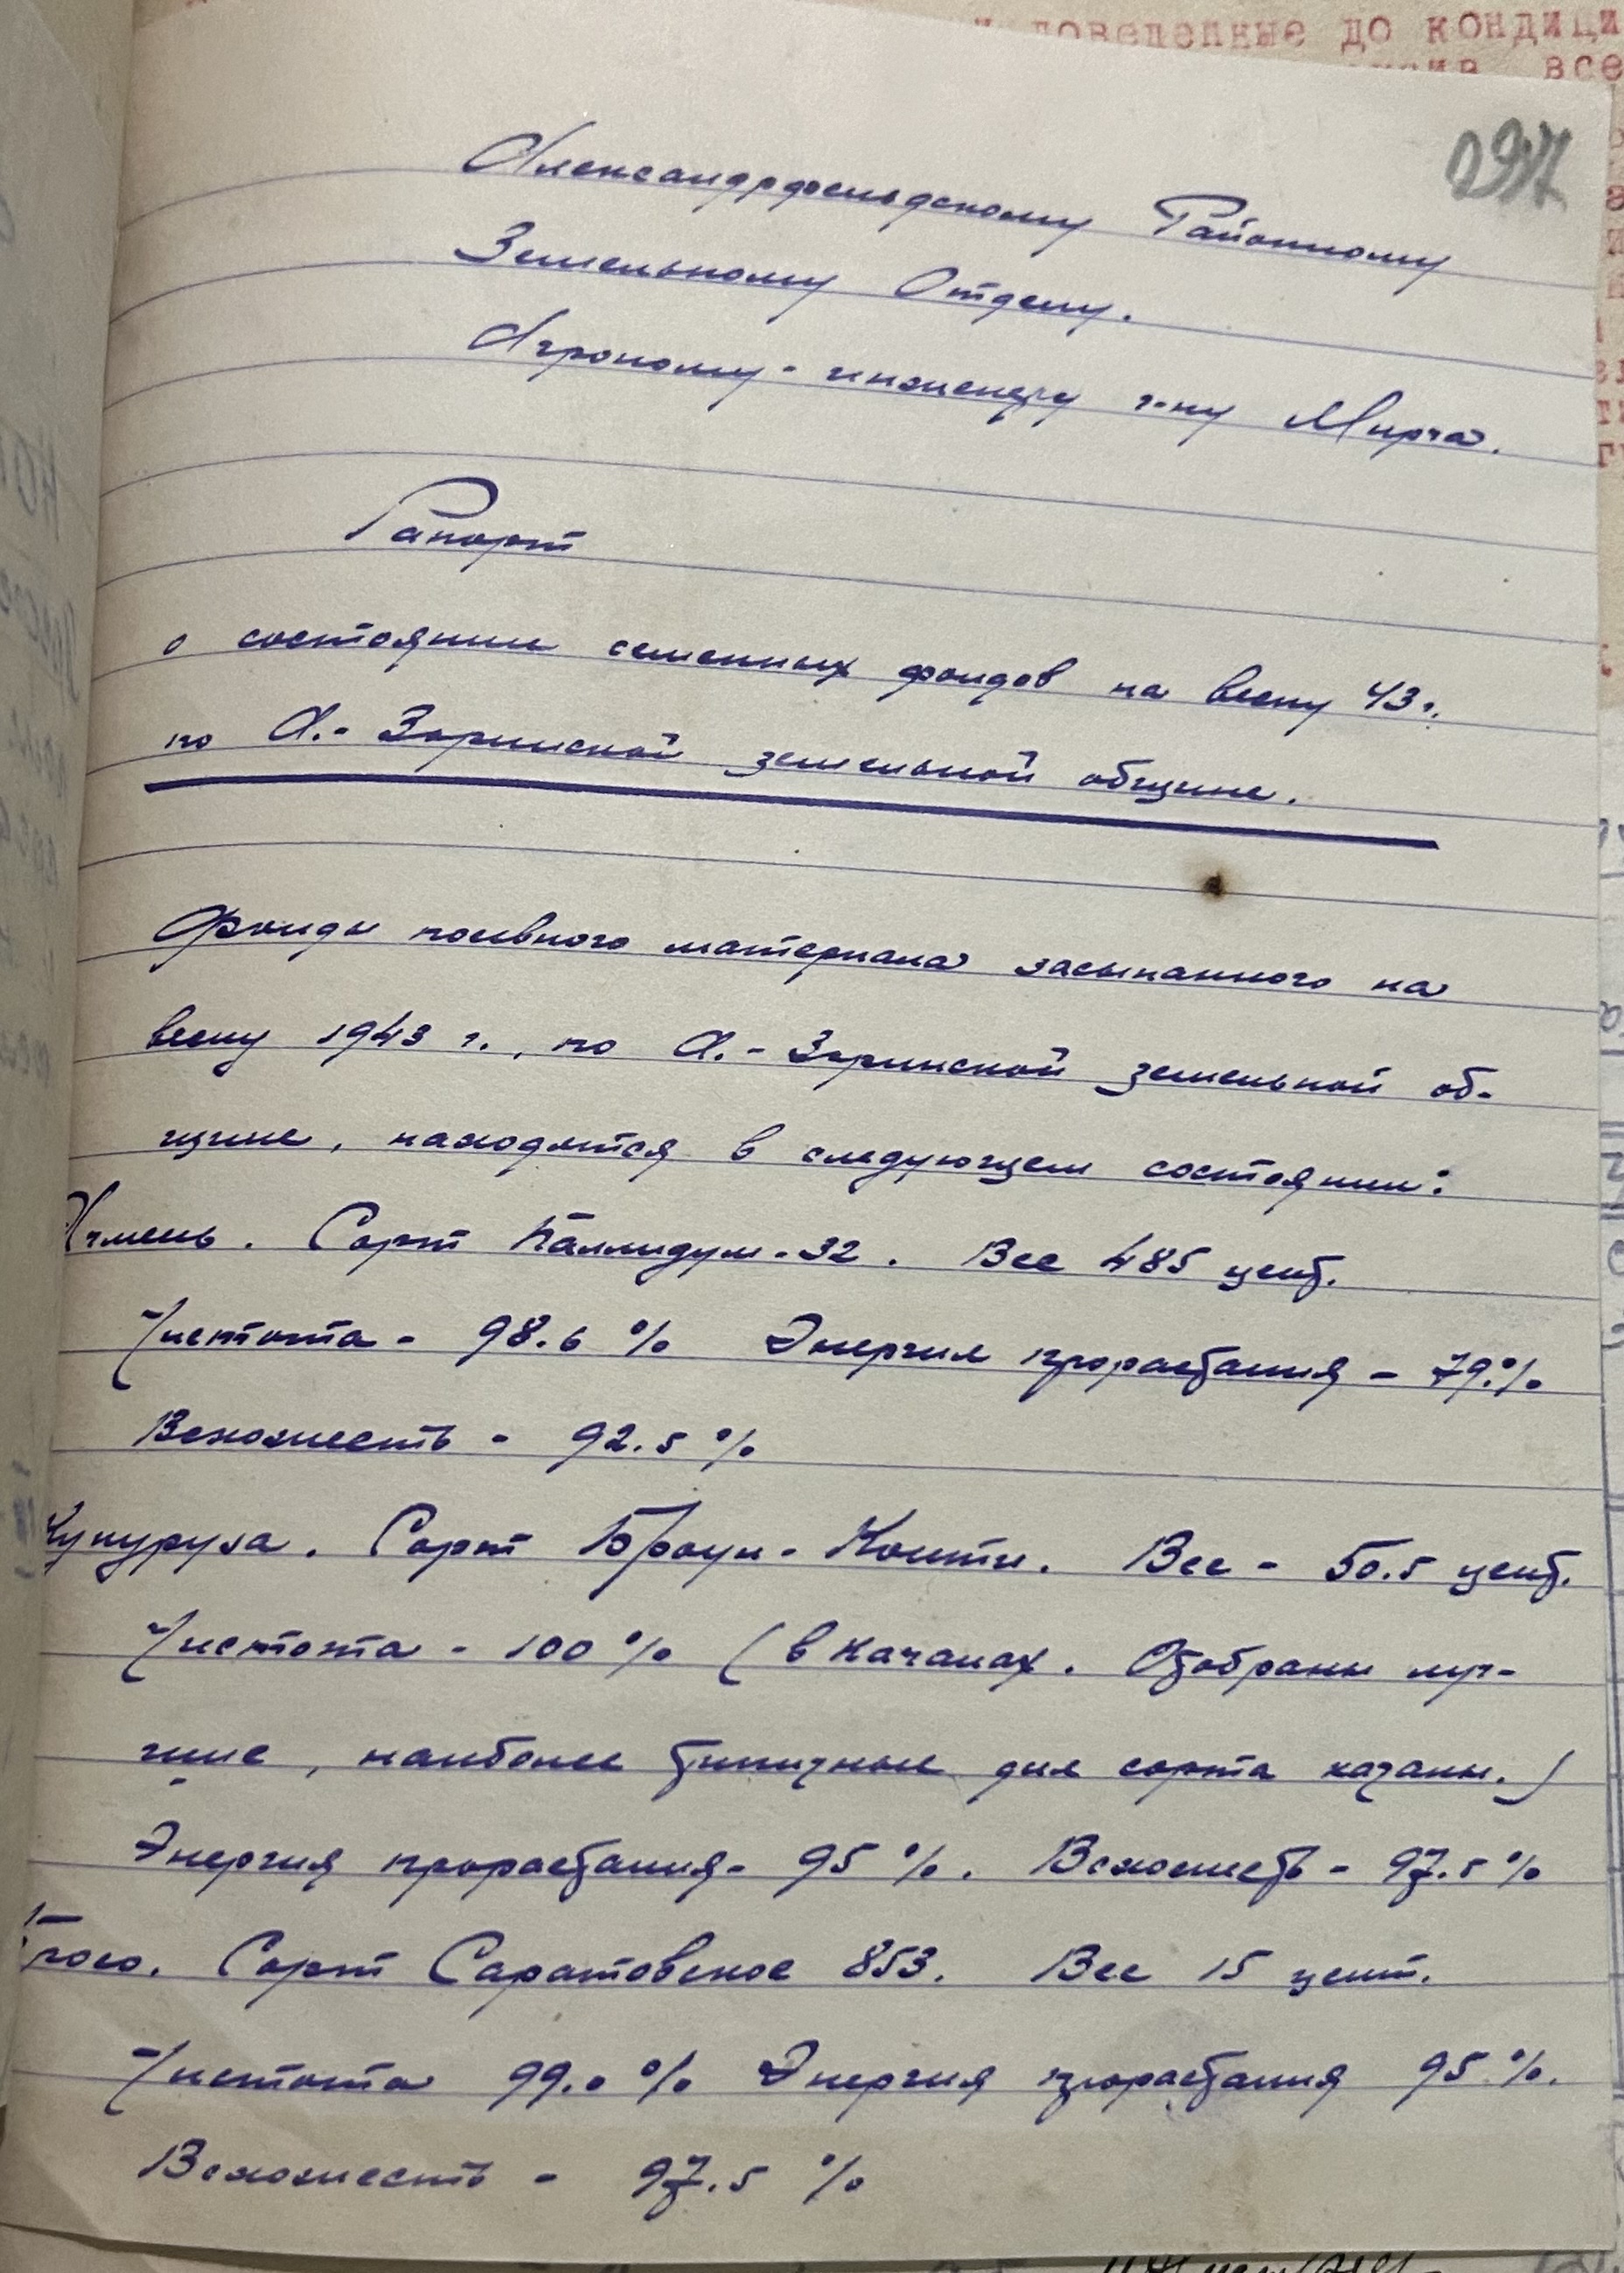 доведенные до кондици
все
Александрфельдскому Районному
Земельному Отделу.
Агроному - инженеру г-ну Мирча.
Рапорт
о состоянии семенных фондов на весну 43 г.
по А.- Заринской земельной общине.
Фонды посевного материала засыпанного на
весну 1943 г., по А.- Заринской земельной об-
щине, находятся в следующем состоянии:
Ячмень. Сорт Паллидум - 32. Вес 485 цент.
Чистота - 98.6 % Энергия прорастания - 79.%
Всхожесть - 92.5 %
Кукуруза. Сорт Броун - Конти. Вес - 50.5 цент.
Чистота - 100 % (в качанах. Отобраны луч-
шие, наиболее типичные для сорта качаны.)
Энергия прорастания - 95 %. Всхожесть - 97.5 %
Просо. Сорт Саратовское 853. Вес 15 цент.
Чистота 99.0 % Энергия прорастания 95 %.
Всхожесть - 97.5 %